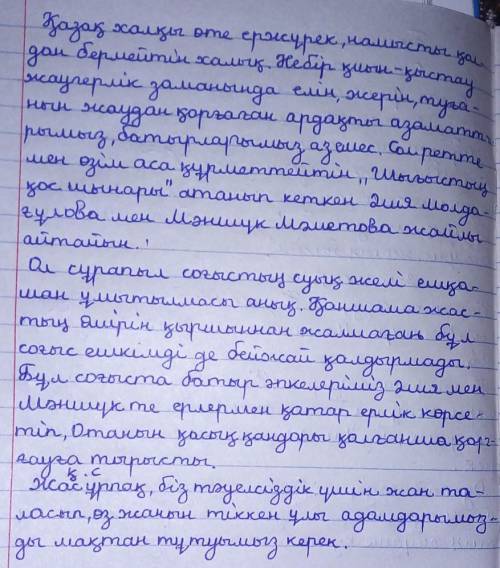 Қазақ халқы өте ержүрек, намысты қол-
дан бермейтін халық. Небір қиын-қыстау
жаугерлік заманында елін, жерін, туға-
нын жаудан қорғаған ардақты азаматта-
рымыз, батырларымыз аз емес. Сол ретте
мен өзім аса құрметтейтін „Шығыстың
қос шынары" атанып кеткен Әлия Молда-
ғұлова мен Мәншүк Мәметова жайлы
айтайын.
Ол сұрапыл соғыстың суық желі ешқа-
шан ұмытылмасы анық. Қаншама жас-
тың өмірін қыршыннан жалмаған бұл
соғыс ешкімді де бейжай қалдырмады.
Бұл соғыста батыр әпкелеріміз Әлия мен
Мәншүк те ерлермен қатар ерлік көрсе-
тіп, Отанын қасық қандары қалғанша қорғ-
ғауға тырысты.
қ. с
Жас ұрпақ, біз тәуелсіздік үшін жан та-
ласып, өз жанын тіккен ұлы адамдарымыз-
ды мақтан тұтуымыз керек.